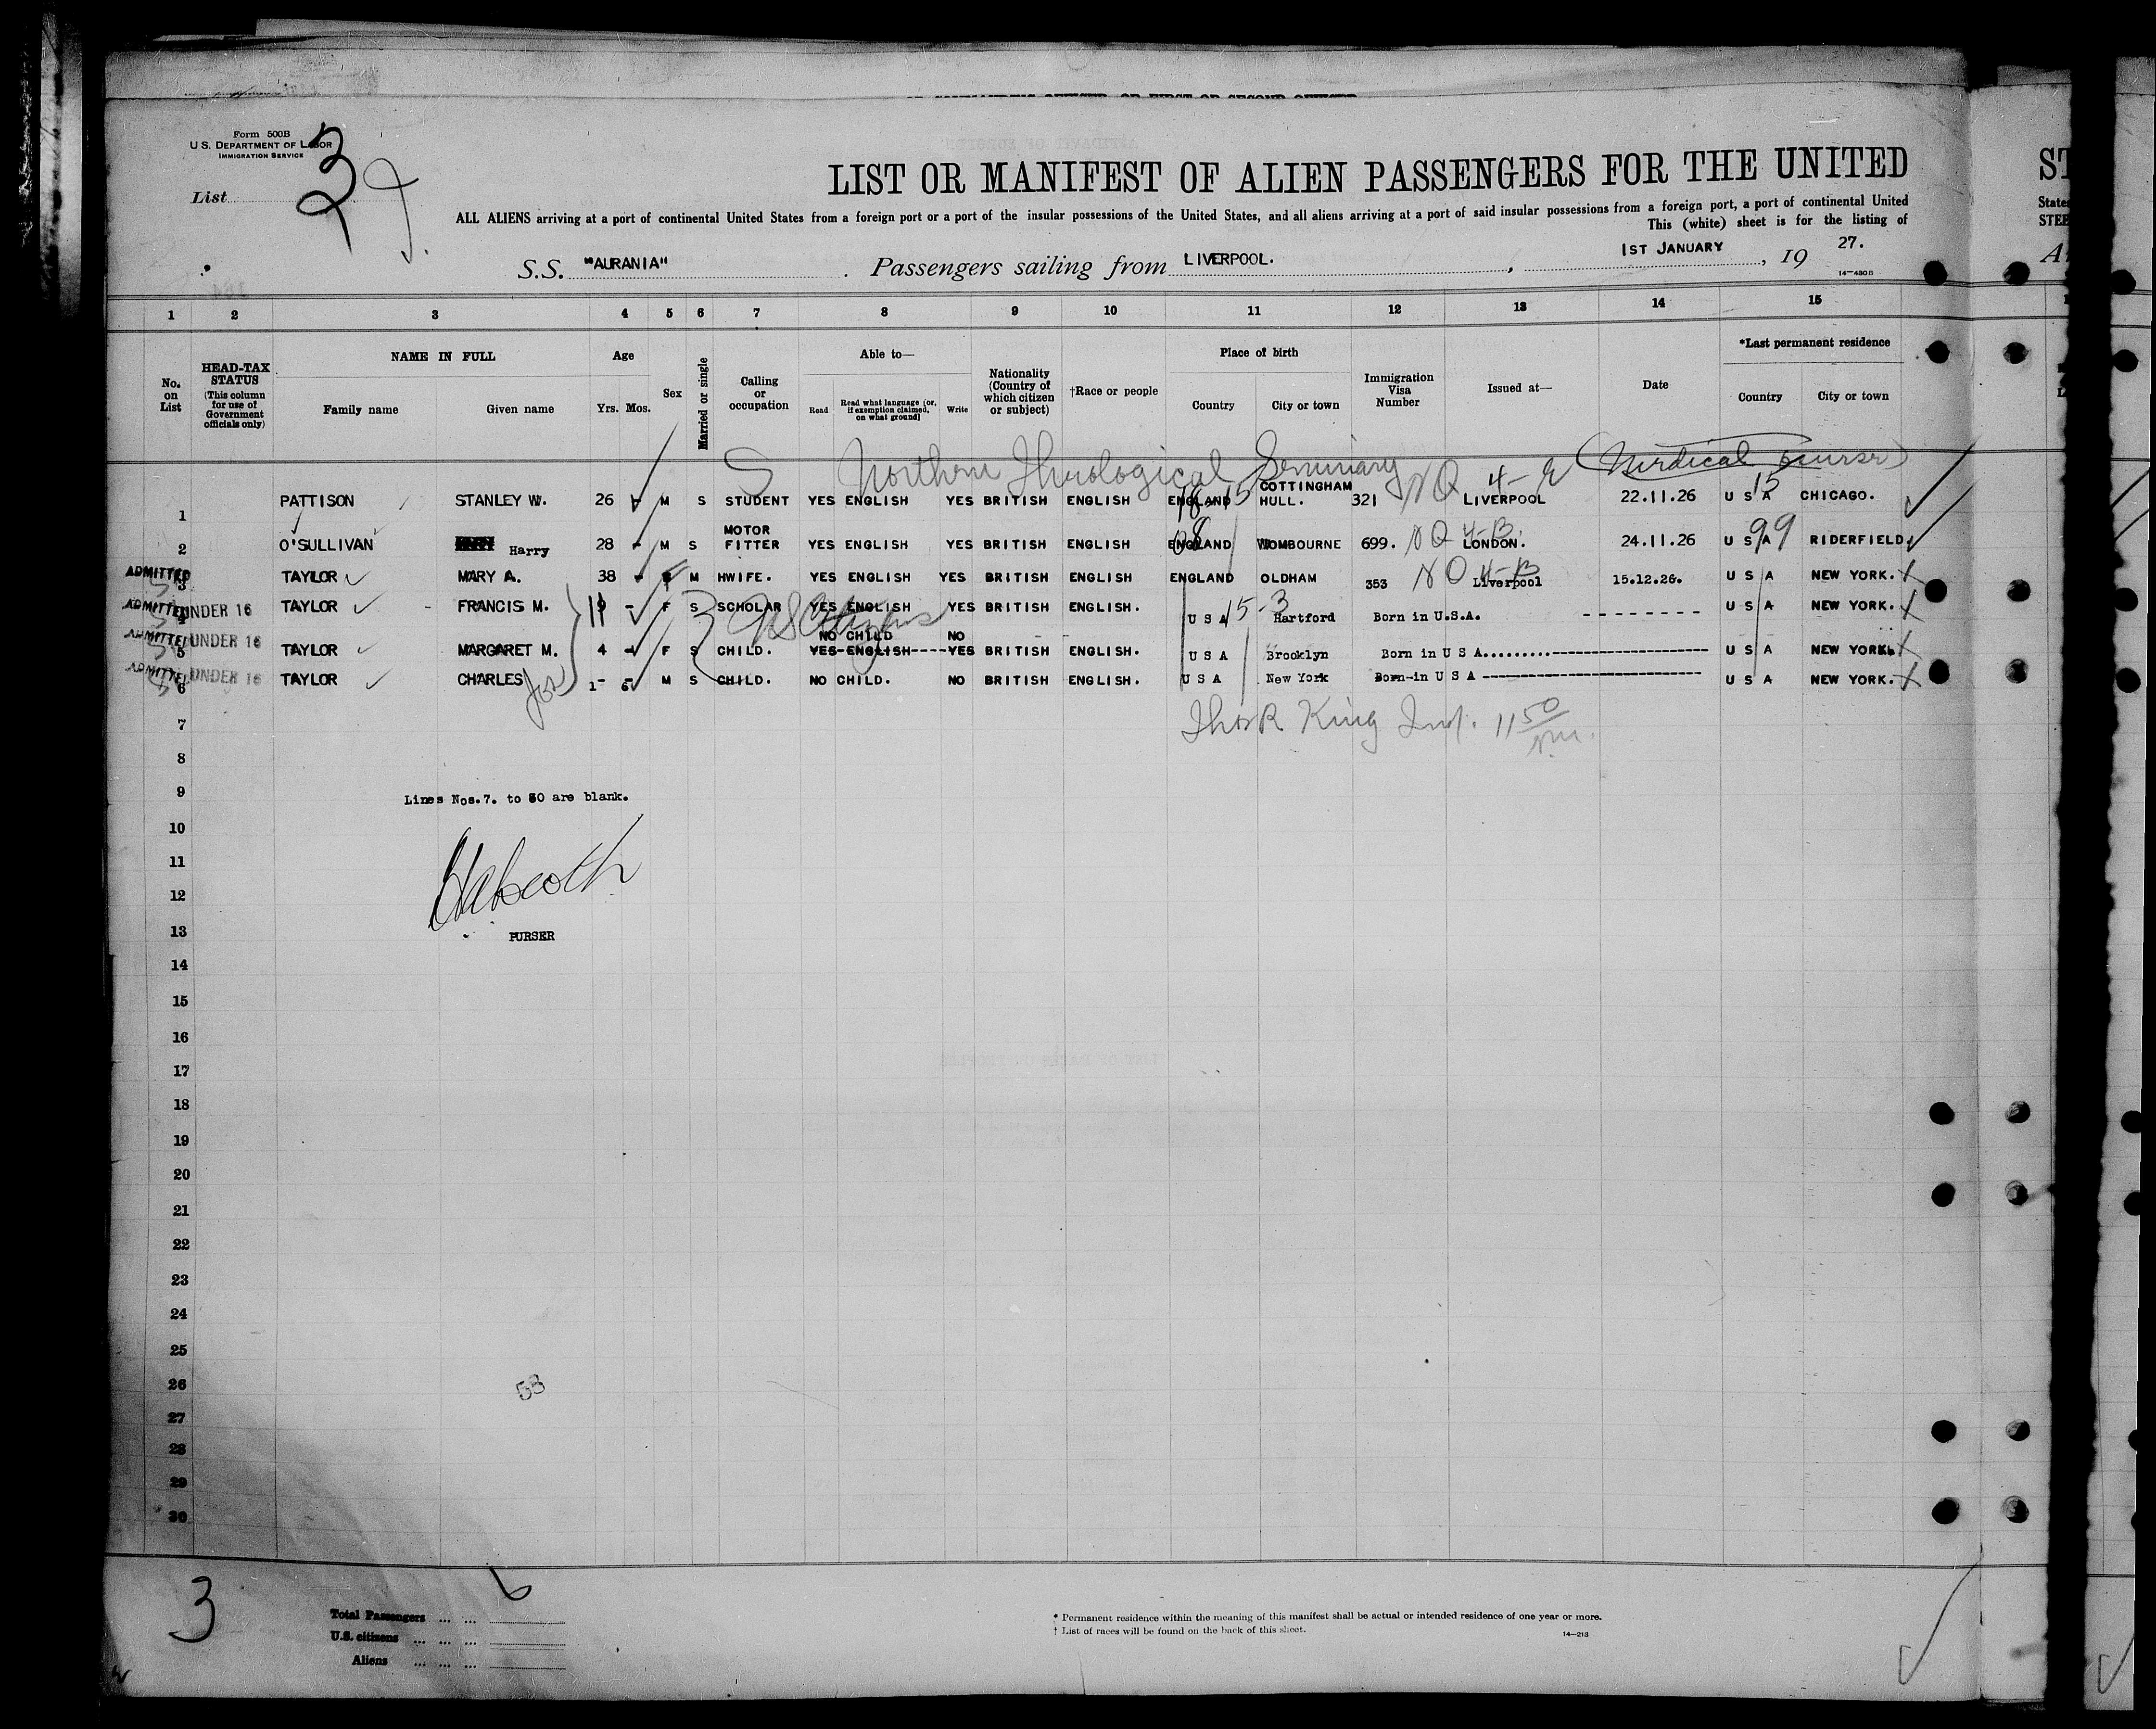 Form 500B
U.S. DEPARTMENT OF LABOR
IMMIGRATION SERVICE
List 3
LIST OR MANIFEST OF ALIEN PASSENGERS FOR THE UNITED
ST
ALL ALIENS arriving at a port of continental United States from a foreign port or a port of the insular possessions of the United States, and all aliens arriving at a port of said insular possessions from a foreign port, a port of continental United
States
This (white) sheet is for the listing of
STEE
S.S. "AURANIA" . Passengers sailing from LIVERPOOL. , 1ST JANUARY , 19 27.
14-430B
1 2 3 4 5 6 7 8 9 10 11 12 13 14 15
No. on List
HEAD-TAX STATUS (This column for use of Government officials only)
NAME IN FULL
Family name Given name
Age
Yrs. Mos.
Sex
Married or single
Calling or occupation
Able to—
Read Read what language [or, if exemption claimed, on what ground] Write
Nationality (Country of which citizen or subject)
†Race or people
Place of birth
Country City or town
Immigration Visa Number
Issued at—
Date
*Last permanent residence
Country City or town
S Northern Theological Seminary NQ 4-E
1 PATTISON STANLEY W. 26 - M S STUDENT YES ENGLISH YES BRITISH ENGLISH ENGLAND COTTINGHAM HULL. 321 LIVERPOOL 22.11.26 U S A CHICAGO.
2 O'SULLIVAN Harry 28 - M S MOTOR FITTER YES ENGLISH YES BRITISH ENGLISH ENGLAND WOMBOURNE 699. NQ 4-B. LONDON. 24.11.26 U S A 99 RIDERFIELD.
ADMITTED 3 TAYLOR MARY A. 38 - F M HWIFE. YES ENGLISH YES BRITISH ENGLISH ENGLAND OLDHAM 353 NQ 4-B Liverpool 15.12.26. U S A NEW YORK.
ADMITTED 4 UNDER 16 TAYLOR FRANCIS M. 11 - F S SCHOLAR YES ENGLISH YES BRITISH ENGLISH. U S A 15-3 Hartford Born in U.S.A. - - - - - - - - U S A NEW YORK.
US Citizens
NO CHILD NO
ADMITTED 5 UNDER 16 TAYLOR MARGARET M. 4 - F S CHILD. YES-ENGLISH----YES BRITISH ENGLISH. U S A Brooklyn Born in U S A.........-------------------- U S A NEW YORK.
ADMITTED 6 UNDER 16 TAYLOR CHARLES Jos 1- 6 M S CHILD. NO CHILD. NO BRITISH ENGLISH. U S A New York Born-in U S A ---------------------------- U S A NEW YORK.
7
Thos R King Insp. 11 50
8
9
Lines Nos.7. to 30 are blank.
10
11
12
13
PURSER
14
15
16
17
18
19
20
21
22
23
24
25
26
53
27
28
29
30
3
6
Total Passengers ... ...
U.S. citizens ... ... ...
Aliens ... ... ...
* Permanent residence within the meaning of this manifest shall be actual or intended residence of one year or more.
† List of races will be found on the back of this sheet.
14-213